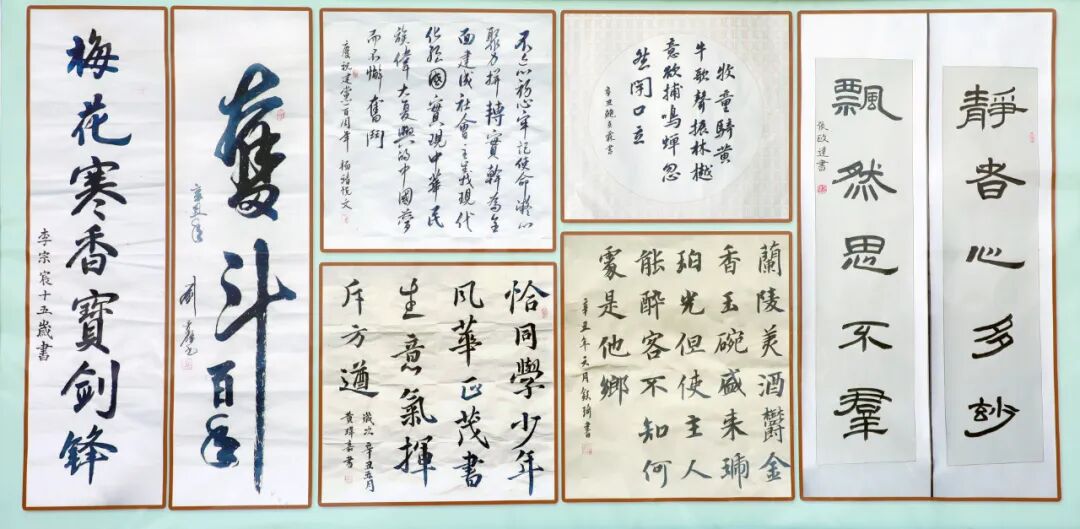 梅花寒香寶剑锋
李宗宸十五歲書
奮斗百年
辛丑年
不忘初心牢记使命凝心
聚力拼搏實幹為全
面建成社會主义现代
化强國實現中華民
族偉大复興的中國夢
而不懈奮鬥
慶祝建黨一百周年 楊詩悦文
恰同學少年
风華正茂書
生意氣揮
斥方遒
歲次辛丑五月
黄烨嘉書
牧童騎黄
牛歌聲振林樾
意欲捕鳴蟬忽
然閉口立
辛丑 書
蘭陵美酒鬱金
香玉碗盛来琥
珀光但使主人
能醉客不知何
處是他鄉
辛丑年六月 書
靜者心多妙
飄然思不羣
張政達書